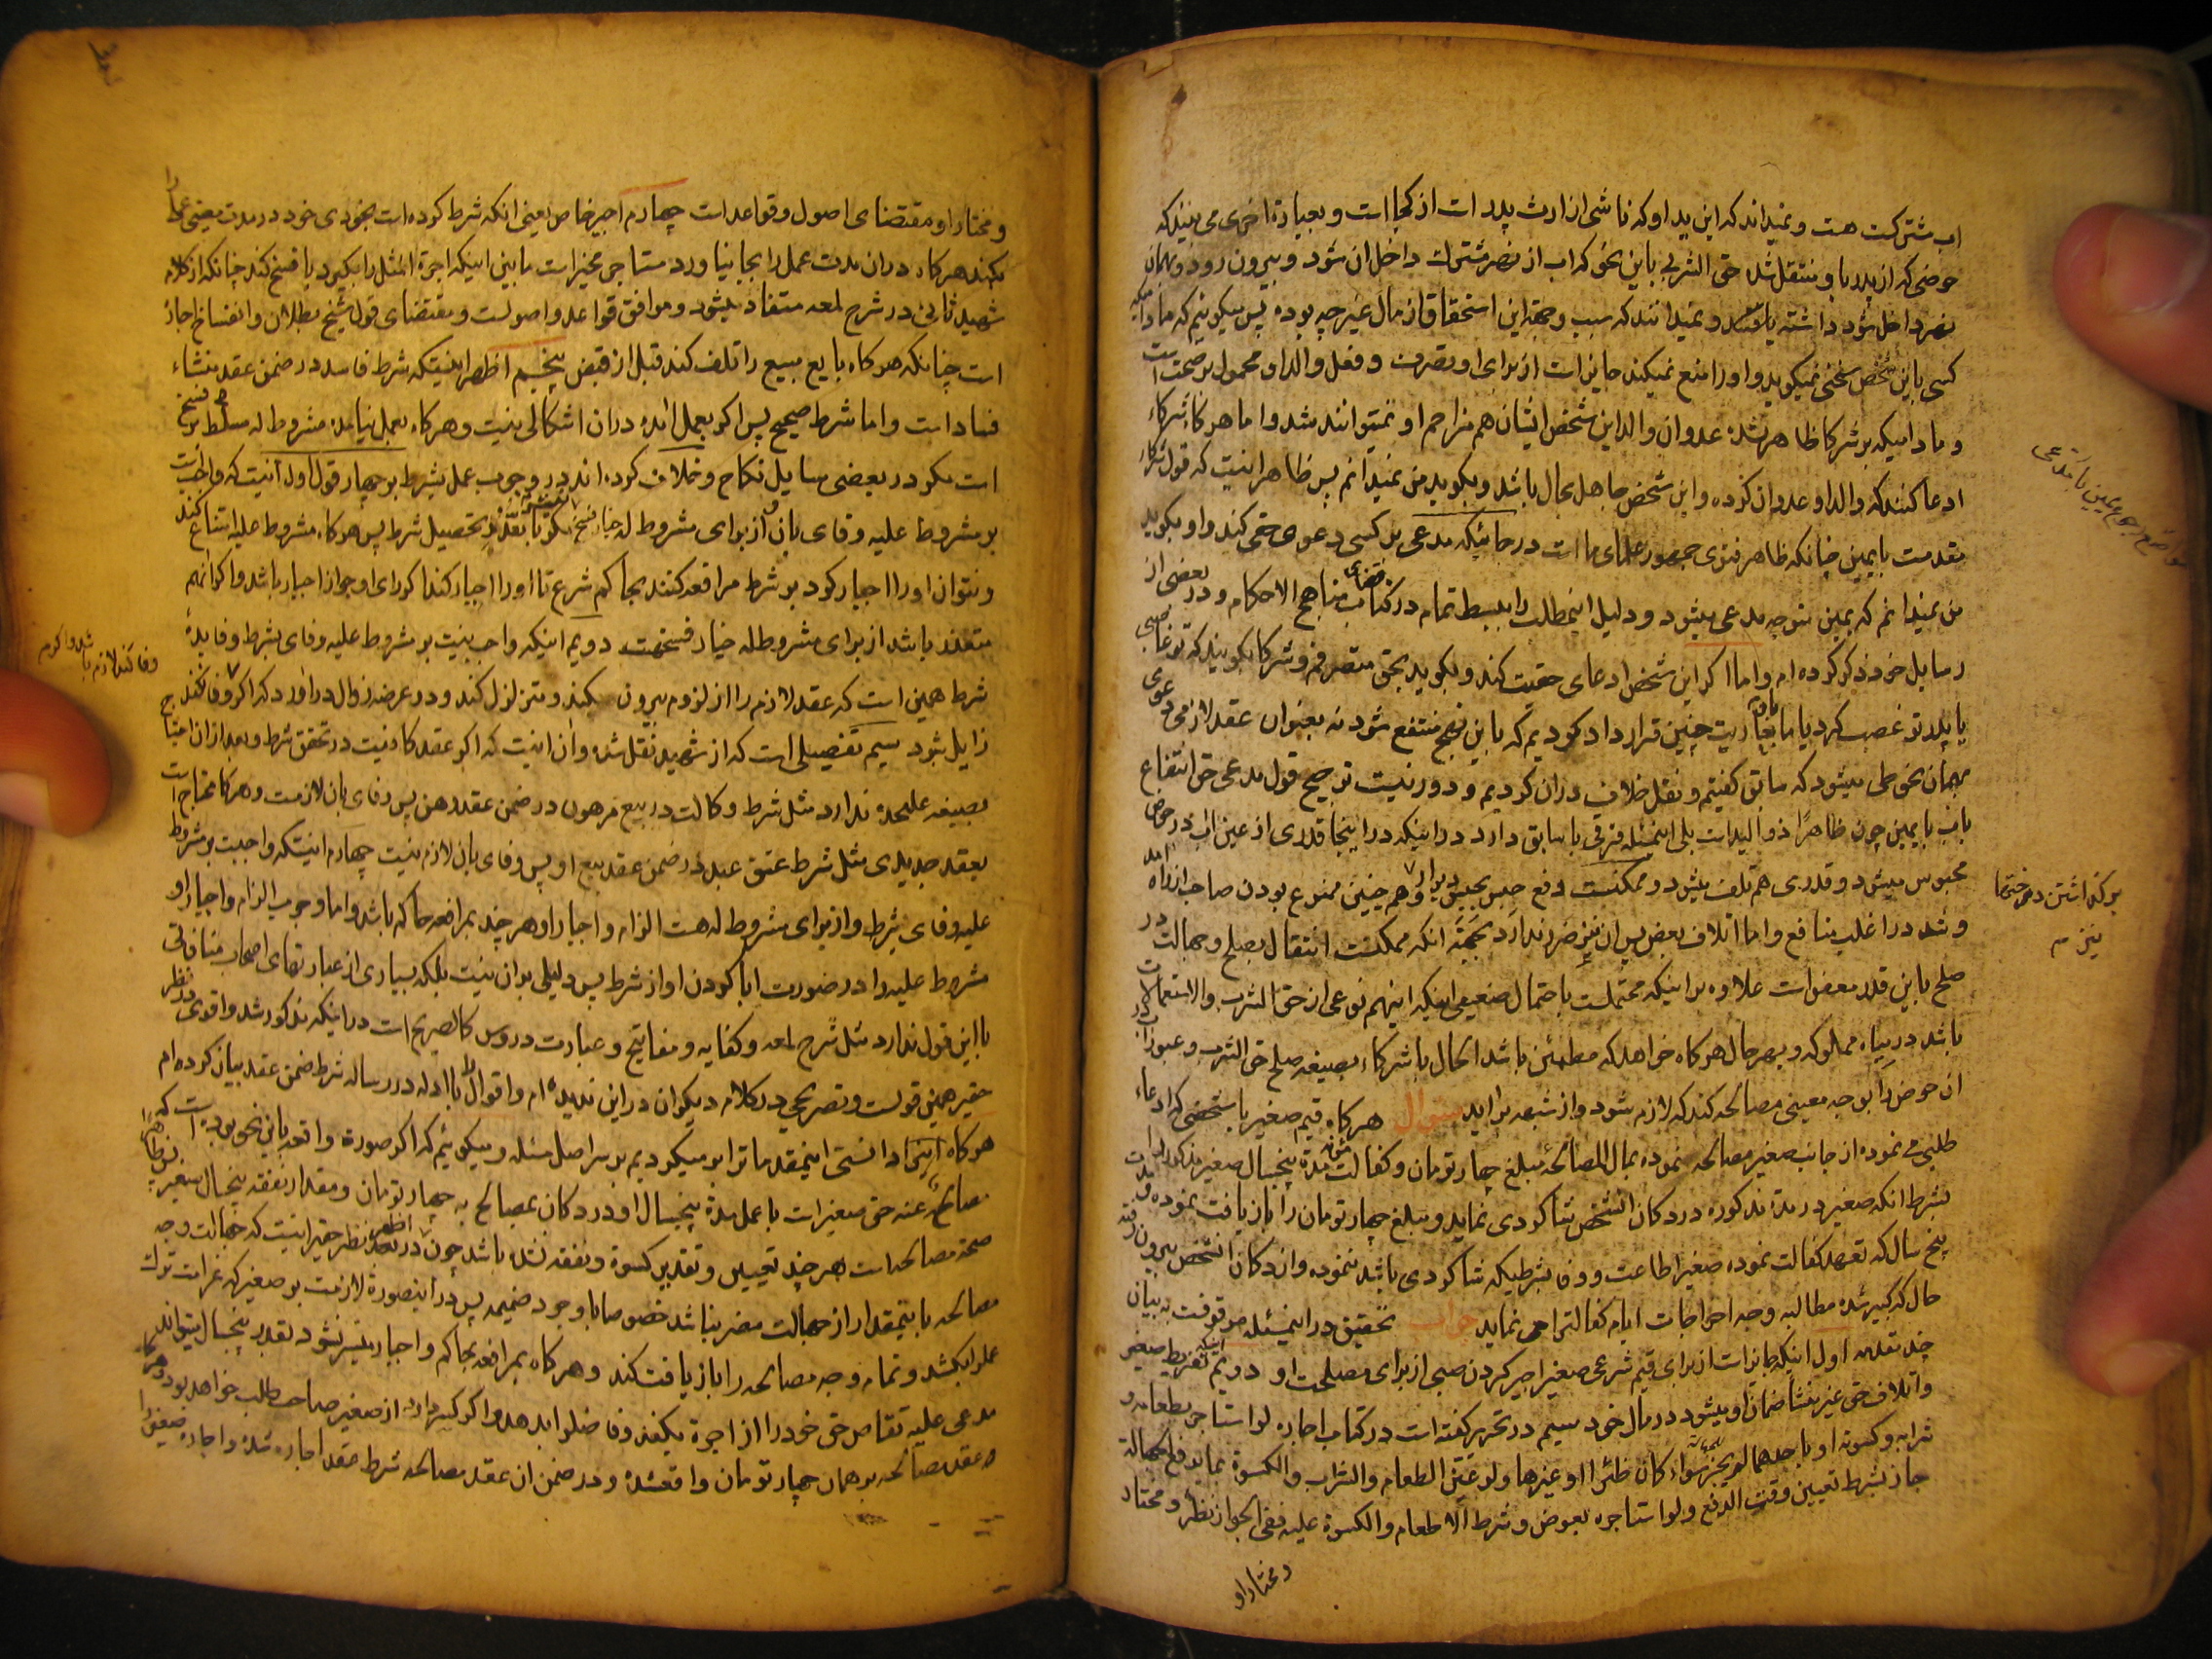 اب مشترکست هست و نمیداند که این ید او که ناشی از ارث پدر است از کجا است و بعبارة اخری می بیند که
حوضی که از پدر باو منتقل شد حق الشربی باین نحو که اب از نهر مشترک داخل ان شود و بیرون رود و بهمان
نهر داخل شود داشته یافتند و نمیدانند که سبب وجهة این استحقاق از مال غیر چه بوده پس میکوییم که مادامیکه
کسی باین شخص سخنی نمیکوید و او را منع نمیکند جایز است از برای او تصرف و فعل والد او محمول بر صحت است
و مادامیکه بر شرکا ظاهر نشده عدوان والد این شخص ایشان هم مزاحم او نمیتوانند شد و اما هرکاه شرکاء
ادعا کنند که والد او عدوان کرده و این شخص جاهل بحال باشد و بکوید من نمیدانم پس ظاهر اینست که قول شرکاء
مقدمست با یمین چنانکه ظاهر فتوی جمهور علمای ما است در جائیکه مدعی بر کسی دعوی حقی کند و او بکوید
من نمیدانم که یمین متوجه مدعی میشود و دلیل اینمطلب را ببسط تمام در کتاب قضای مناهج الاحکام و در بعضی از
رسایل خود ذکر کرده ام و اما اکر این شخص ادعای حقیت کند و بکوید بحق متصرفم و شرکا بکویند که تو غاصبی
یا پدر تو غصب کرد یا ما با تو بعاریت چنین قرارداد کردیم که باین نهج منتفع شود نه بعنوان عقد لازمی دعوی
بهمان نحو طی میشود که سابق کفتیم و نقل خلاف دران کردیم و دور نیست ترجیح قول مدعی حق انتفاع
باب با یمین چون ظاهرًا ذو الید است بلی اینمسئله فرقی با سابق دارد در اینکه در اینجا قدری از عین اب در حوض
محبوس میشود و قدری هم تلف میشود و ممکنست دفع حبس و همچنین ممنوع بودن صاحب از راه امد
و شد در اغلب منافع و اما اتلاف بعض پس ان نیز ضرر ندارد بجهة انکه ممکنست انتقال بصلح و جهالت در
صلح باین قدر معفو است علاوه بر اینکه محتملست باحتمال ضعیفی اینکه اینهم نوعی از حق الشرب و الاستعمال
باشد در میاه مملوکه و بهر حال هرکاه خواهد که مطمئن باشد الحال با شرکاء بصیغه صلح حق الشرب و عبور اب در
ان حوض را بوجه معینی مصالحه کند که لازم شود و از شبهه براید سئوال هرکاه قیم صغیر با شخصی که ادعاء
طلبی نموده از جانب صغیر مصالحه نموده بمال المصالحه مبلغ چهار تومان و کفالت مدة پنجسال صغیر مذکور را
بشرط انکه صغیر در مدة مذکوره در دکان انشخص شاکردی نماید و مبلغ چهار تومان را بازیافت نموده و
پنج سال که تعهد کفالت نموده صغیر اطاعت و وفا بشرطیکه شاکردی باشد ننموده و از دکان انشخص بیرون رفته
حال که کبیر شده مطالبه وجه اخراجات ایام کفالت را می نماید جواب تحقیق در اینمسئله موقوفست به بیان
چند مقدمه اول اینکه جایز است از برای قیم شرعی صغیر اجیر کردن صبی از برای مصلحت او دویم اینکه تفریط صغیر
و اتلاف حق غیر منشأ ضمان او میشود در مال خود سیم در تحریر کفته است در کتاب اجاره لو استاجر بطعامه و
شرابه و کسوته او باحدهما لم یجز سواء کان ظئرا او غیرها ولو عین الطعام والشراب والکسوة بما یدفع الجهالة
جاز بشرط تعیین وقت الدفع ولو استاجره بعوض و شرط الاطعام والکسوة علیه ففی الجواز نظر و مختار
و مختار او
مدعی با یمین
بر کذاشتن درختها
نیز
و مختار او مقتضای اصول و قواعد است چهارم اجیر خاص یعنی انکه شرط کرده است بخودی خود در مدت معینی عمل را
بکند هرکاه دران مدت عمل را بجا نیاورد مستاجر مخیر است مابین اینکه اجرة المثل را بکیرد یا فسخ کند چنانکه از کلام
شهید ثانی در شرح لمعه مستفاد میشود و موافق قواعد و اصولست و مقتضای قول شیخ بطلان و انفساخ اجاره
است چنانکه هرکاه بایع مبیع را تلف کند قبل از قبض پنجم اظهر اینستکه شرط فاسد در ضمن عقد منشاء
فساد است و اما شرط صحیح پس اکر بعمل امده دران اشکالی نیست و هرکاه بعمل نیامده مشروط له مسلط بر فسخ
است مکر در بعضی مسایل نکاح و خلاف کرده اند در وجوب عمل بشرط بر چهار قول اول آنست که واجبست
بر مشروط علیه وفای بان و از برای مشروط له خیار فسخ نیست مکر با تعذر تحصیل شرط پس هرکاه مشروط علیه امتناع کند
و بتوان او را اجبار کرد بر شرط مرافعه کنند بحاکم شرع تا او را اجبار کند اکر رای او جواز اجبار باشد و اکر انهم
متعذر باشد از برای مشروط له خیار فسخست دویم اینکه واجب نیست بر مشروط علیه وفای بشرط و فایدهٔ
شرط همین است که عقد لازم را از لزوم بیرون میکند و متزلزل کند و در عرضه زوال دراورد که اکر وفا نکند
زایل شود سیم تفصیلی است که از شهید نقل شده و ان اینست که اکر عقد کافیست در تحقق شرط و بعد از ان احتیاج
بصیغه علیحده ندارد مثل شرط وکالت در بیع مرهون در ضمن عقد رهن پس وفای بان لازمست و هرکاه محتاج است
بعقد جدیدی مثل شرط عتق عبد در ضمن عقد بیع او پس وفای بان لازم نیست چهارم اینستکه واجبست بر مشروط
علیه وفای بشرط و از برای مشروط له هست الزام و اجبار او هر چند بمرافعه حاکم باشد و اما وجوب الزام و اجبار او
مشروط علیه را در صورت ابا کردن او از شرط پس دلیلی بران نیست بلکه بسیاری از عبارتهای اصحاب منافاتی
با این قول ندارد مثل شرح لمعه و کفایه و مفاتیح و عبارت دروس کالصریح است در اینکه مذکور شد و اقوی در نظر
حقیر همین قولست و تصریحی در کلام دیکران در این ندیده ام و اقوال را با ادله در رساله شرط ضمن عقد بیان کرده ام
هرکاه این را دانستی اینمقدمات را برمیکردیم بر سر اصل مسئله و میکوئیم که اکر صورة واقعه باین نحو بوده است که
مصالح عنه حق صغیر است با عمل مدة پنجسال او در دکان بمصالح به چهار تومان و مقدار نفقه پنجسال صغیر پس ظاهرًا
صحة مصالحه است هر چند تعیین و تقدیر کسوة و نفقه نشده باشد چون در نظر حقیر اینست که جهالت وجه
مصالحه با اینمقدار از جهالت مضر نباشد خصوصا با وجود ضمیمه پس در اینصورة لازمست بر صغیر که غرامت ترک
عمل را بکشد و تمام وجه مصالحه را بازیافت کند و هرکاه بمرافعه بحاکم و اجبار میسر نشود بقدر پنجسال میتواند
مدعی علیه تقاص حق خود را از اجرة بکند و فاضل را بدهد و اکر کسر دارد از صغیر صاحب طلب خواهد بود و هرکاه
عقد مصالحه بر همان چهار تومان واقعشده و در ضمن ان عقد مصالحه شرط عقد اجاره شده و اجاره صغیر را
وفا کند لازم باشد و اکر